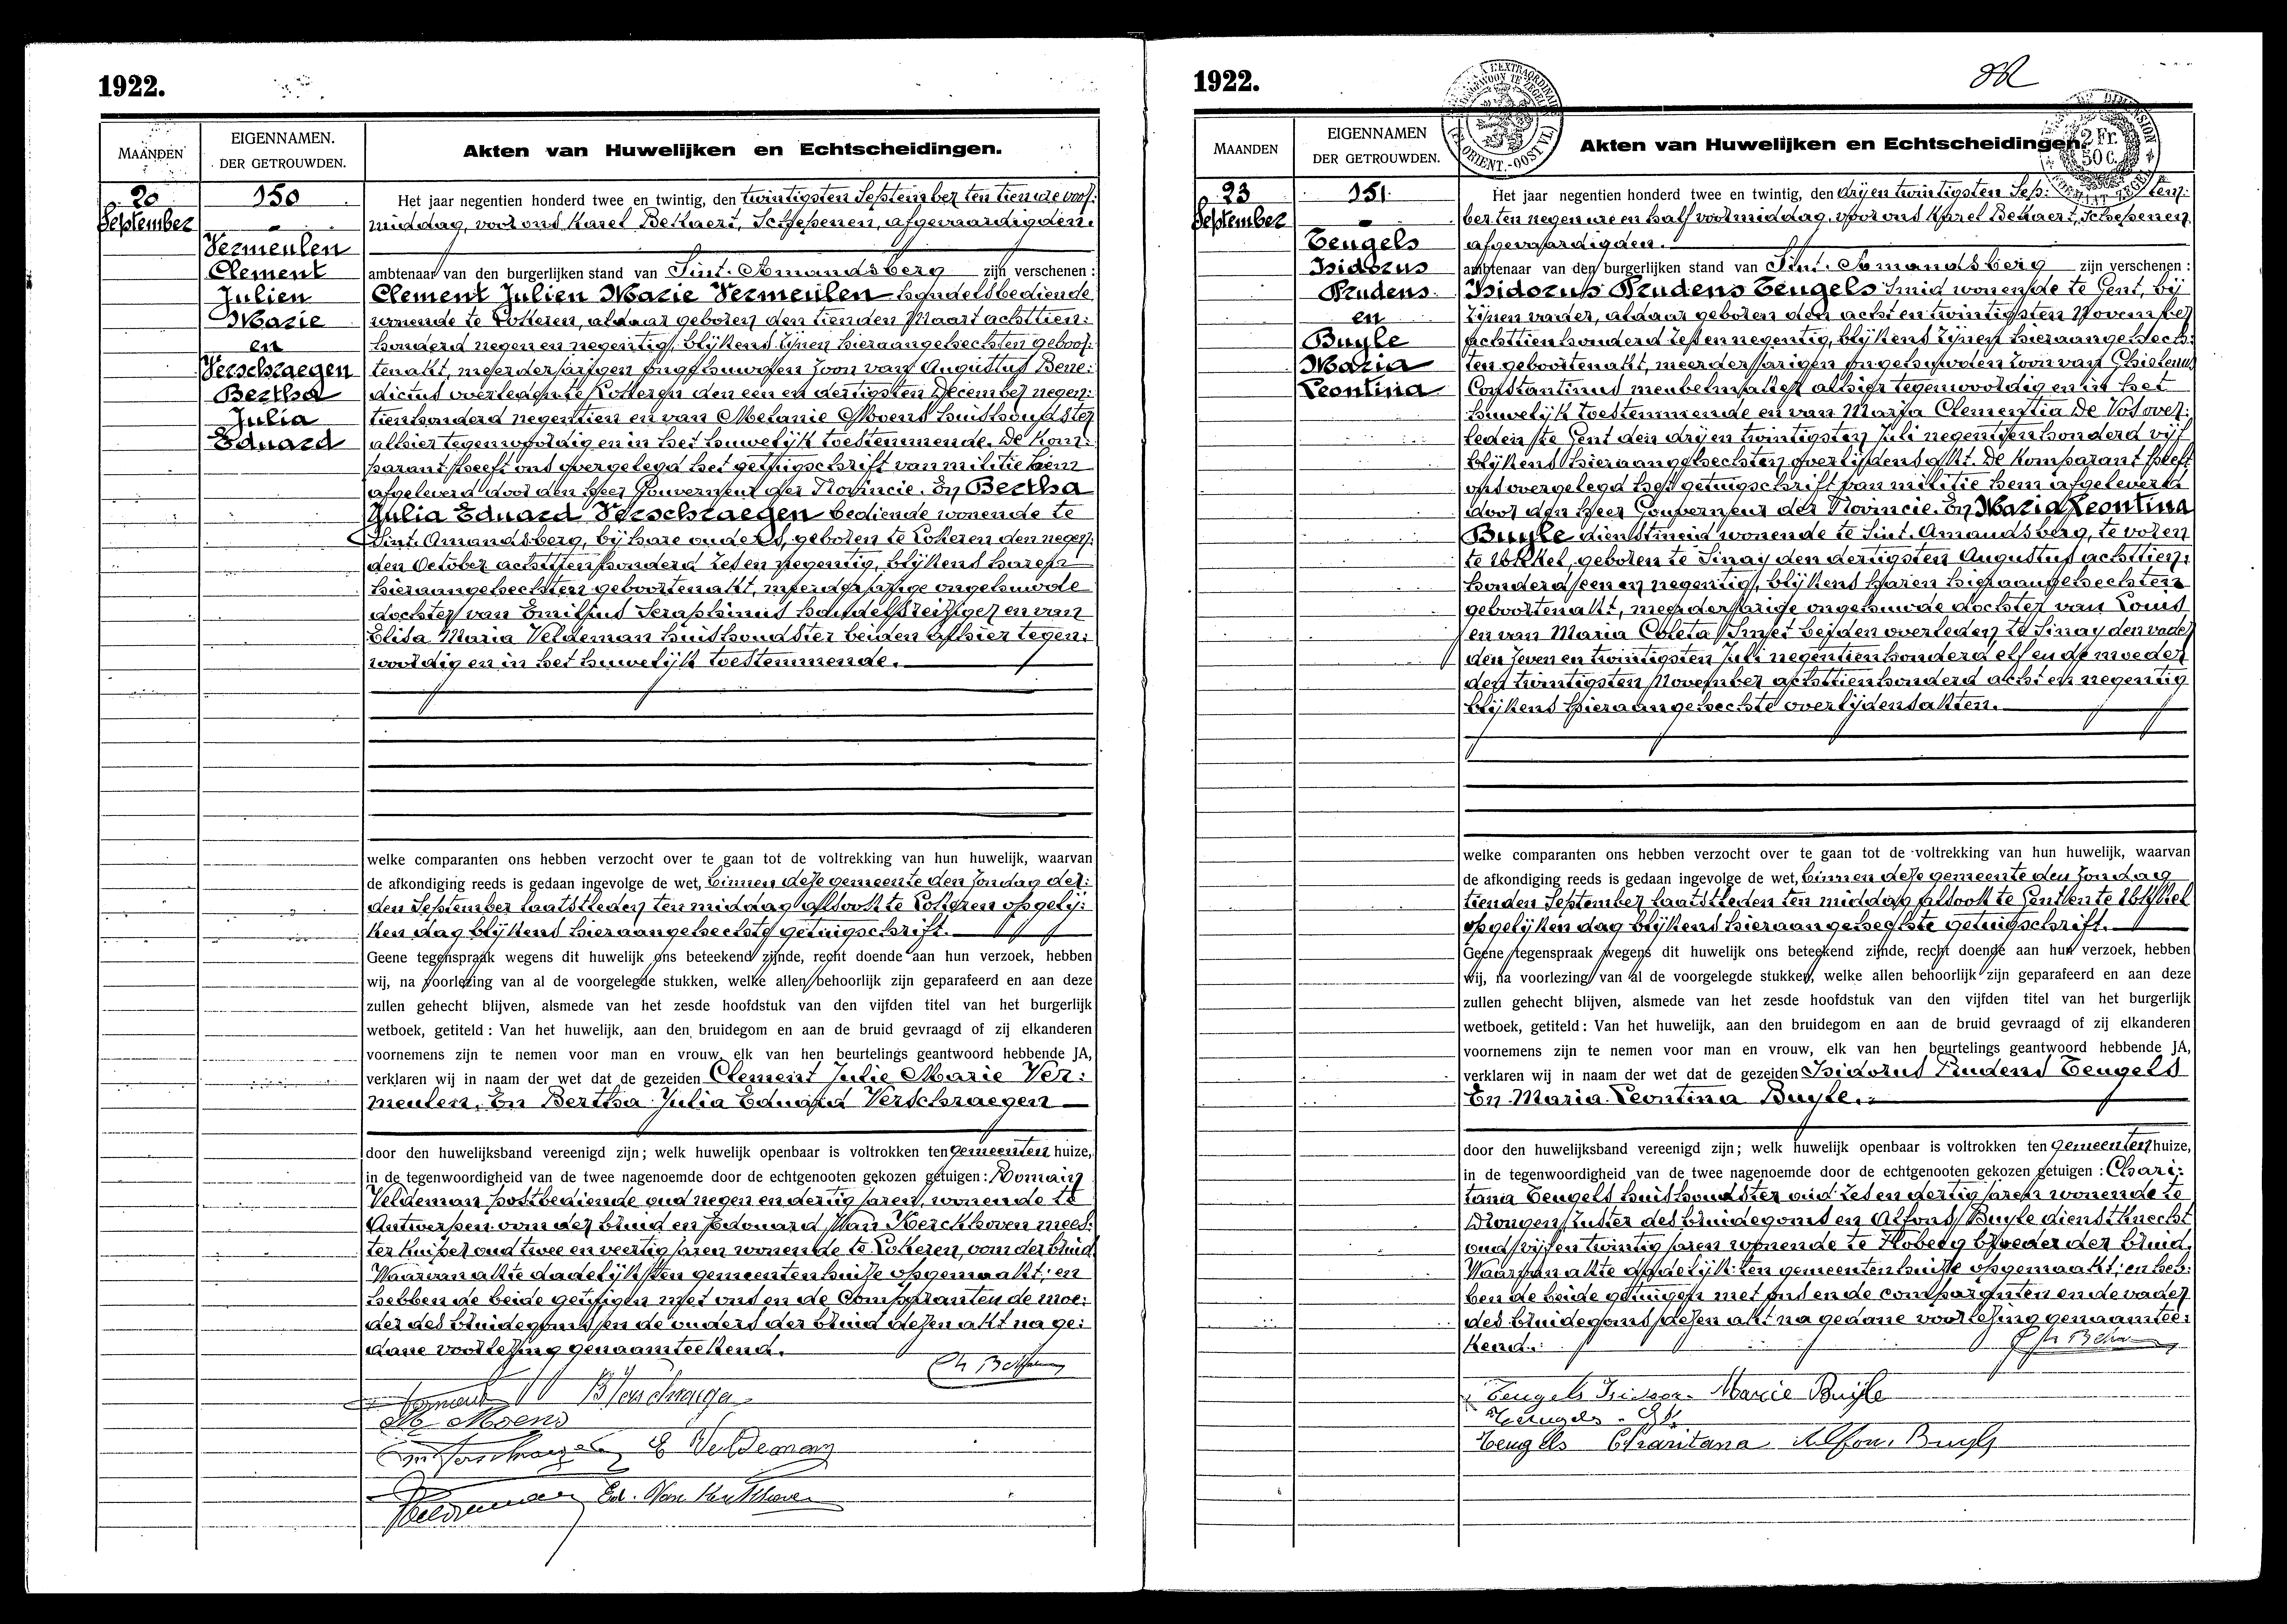 1922.
MAANDEN
EIGENNAMEN.
DER GETROUWDEN.
Akten van Huwelijken en Echtscheidingen.
20
September
150
Vermeulen
Clement
Julien
Marie
en
Verschraegen
Bertha
Julia
Eduard
Het jaar negentien honderd twee en twintig, den twintigsten September ten tien ure voor:
middag, voor ons Karel Bekaert, Schepenen, afgevaardigden.
ambtenaar van den burgerlijken stand van Sint-Amandsberg zijn verschenen:
Clement Julien Marie Vermeulen handelsbediende
wonende te Lokeren, aldaar geboren den tienden Maart achttien:
honderd negen en negentig, blijkens zijnen hieraangehechten geboor:
tenakt, meerderjarigen ongehuwden zoon van Augustus Bene:
dictus overleden te Lokeren den een en dertigsten December negen:
tienhonderd negentien en van Melanie Moens huishoudster
alhier tegenwoordig en in het huwelijk toestemmende. De kom:
parant heeft ons overgelegd het getuigschrift van militie hem
afgeleverd door den Heer Gouverneur der Provincie. En Bertha
Julia Eduard Verschraegen bediende wonende te
Sint-Amandsberg, bij hare ouders, geboren te Lokeren den negen:
den October achttien honderd zes en negentig, blijkens haren
hieraangehechten geboortenakt, meerderjarige ongehuwde
dochter van Emilius Seraphinus handelsreiziger en van
Elisa Maria Veldeman huishoudster beiden alhier tegen:
woordig en in het huwelijk toestemmende.
welke comparanten ons hebben verzocht over te gaan tot de voltrekking van hun huwelijk, waarvan
de afkondiging reeds is gedaan ingevolge de wet, binnen deze gemeente den Zondag der:
den September laatstleden ten middag alsook te Lokeren op gelij:
ken dag blijkens hieraangehechte getuigschrift.
Geene tegenspraak wegens dit huwelijk ons beteekend zijnde, recht doende aan hun verzoek, hebben
wij, na voorlezing van al de voorgelegde stukken, welke allen behoorlijk zijn geparafeerd en aan deze
zullen gehecht blijven, alsmede van het zesde hoofdstuk van den vijfden titel van het burgerlijk
wetboek, getiteld: Van het huwelijk, aan den bruidegom en aan de bruid gevraagd of zij elkanderen
voornemens zijn te nemen voor man en vrouw, elk van hen beurtelings geantwoord hebbende JA,
verklaren wij in naam der wet dat de gezeiden Clement Julie Marie Ver:
meulen. En Bertha Julia Eduard Verschraegen
door den huwelijksband vereenigd zijn; welk huwelijk openbaar is voltrokken ten gemeenten huize,
in de tegenwoordigheid van de twee nagenoemde door de echtgenooten gekozen getuigen: Romain
Veldeman postbediende oud negen en dertig jaren, wonende te
Antwerpen oom der bruid en Edouard Van Kerckhoven mees:
ter kuiper oud twee en veertig jaren wonende te Lokeren, oom der bruid.
Waarvan akte dadelijk ten gemeentenhuize opgemaakt; en
hebben de beide getuigen met ons en de Comparanten de moe:
der des bruidegoms en de ouders der bruid dezen akt na ge:
dane voorlezing genaamteekend.
B Verschraege
M Moens
E Veldeman
Veldeman Ed. Van Kerckhoven
1922.
MAANDEN
EIGENNAMEN
DER GETROUWDEN.
Akten van Huwelijken en Echtscheidingen.
2 Fr.
50 c.
23
September
151
Teugels
Isidorus
Prudens
en
Buyle
Maria
Leontina
Het jaar negentien honderd twee en twintig, den dry en twintigsten Sep: tem:
ber ten negen ure en half voormiddag, voor ons Karel Bekaert, Schepenen
afgevaardigden.
ambtenaar van den burgerlijken stand van Sint-Amandsberg zijn verschenen:
Isidorus Prudens Teugels smid wonende te Gent, bij
zijnen vader, aldaar geboren den acht en twintigsten November
achttienhonderd zes en negentig, blijkens zijnen hieraangehech:
ten geboortenakt, meerderjarigen ongehuwden zoon van Ghislenus
Constantinus meubelmaker alhier tegenwoordig en in het
huwelijk toestemmende en van Maria Clementia De Vos over:
leden te Gent den dry en twintigsten Juli negentien honderd vijf
blijkens hieraangehechten overlijdensakt. De komparant heeft
ons overgelegd het getuigschrift van militie hem afgeleverd
door den Heer Gouverneur der Provincie. En Maria Leontina
Buyle dienstmeid wonende te Sint-Amandsberg, te voren
te Ukkel, geboren te Sinay den dertigsten Augustus achttien:
honderd een en negentig, blijkens haren hieraangehechten
geboortenakt, meerderjarige ongehuwde dochter van Louis
en van Maria Coleta Smet beiden overleden te Sinay den vader
den zeven en twintigsten Juli negentienhonderd elf en de moeder
den twintigsten November achttienhonderd acht en negentig
blijkens hieraangehechte overlijdensakten.
welke comparanten ons hebben verzocht over te gaan tot de voltrekking van hun huwelijk, waarvan
de afkondiging reeds is gedaan ingevolge de wet, binnen deze gemeente den Zondag
tienden September laatstleden ten middag alsook te Gent en te Ukkel
op gelijken dag blijkens hieraangehechte getuigschrift.
Geene tegenspraak wegens dit huwelijk ons beteekend zijnde, recht doende aan hun verzoek, hebben
wij, na voorlezing van al de voorgelegde stukken, welke allen behoorlijk zijn geparafeerd en aan deze
zullen gehecht blijven, alsmede van het zesde hoofdstuk van den vijfden titel van het burgerlijk
wetboek, getiteld: Van het huwelijk, aan den bruidegom en aan de bruid gevraagd of zij elkanderen
voornemens zijn te nemen voor man en vrouw, elk van hen beurtelings geantwoord hebbende JA,
verklaren wij in naam der wet dat de gezeiden Isidorus Prudens Teugels
En Maria Leontina Buyle.
door den huwelijksband vereenigd zijn; welk huwelijk openbaar is voltrokken ten gemeenten huize,
in de tegenwoordigheid van de twee nagenoemde door de echtgenooten gekozen getuigen: Chari:
tana Teugels huishoudster oud zes en dertig jaren wonende te
Drongen zuster des bruidegoms en Alfons Buyle dienstknecht
oud vijf en twintig jaren wonende te Floberg broeder der bruid.
Waarvan akte dadelijk ten gemeentenhuize opgemaakt; en heb:
ben de beide getuigen met ons en de comparanten en de vader
des bruidegoms dezen akt na gedane voorlezing genaamtee:
kend.
Teugels Isidoor Marie Buijle
Teugels
Teugels Charitana Alfons Buyle